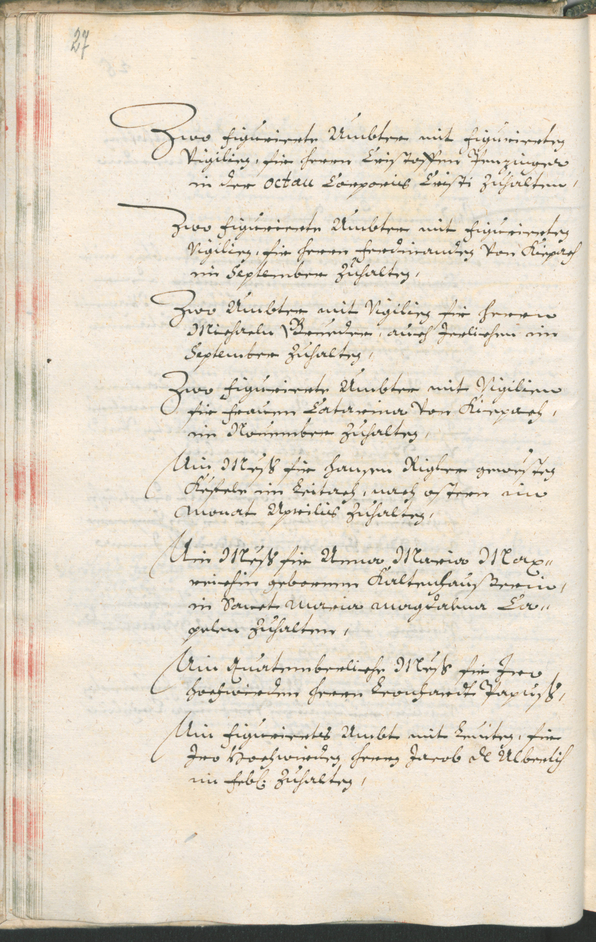 27
Zwo figurierte Ambter mit figurierten
Vigilien, für herrn Cristoffen Jenzinger
in der octau Corporis Cristi Zuhalten,
Zwo figurierte Ambter mit figurierten
Vigilien, für herrn Ferdinanden Von Kiepach
im September Zuhalten,
Zwo Ambter mit Vigilien für herrn
Michaeln auch Jerlichen im
September Zuhalten,
Zwo figurierte Ambter mit Vigilien
für frauen Catarina Von Kiepach,
im Nouember Zuhalten,
Ain Mess für hansen Rigler gewesten
im nach ostern im
Monat Aprilis Zuhalten,
Ain Mess für Anna Maria May-
gebornnen
in Sanct Maria magdalena Ca-
pelen Zuhalten,
Ain quatemberliche Mess für Iro
hochwierden herrn Leonhardt Papuss,
Ain figuriertes Ambt mit Leuiten, für
Iro Hochwürden herrn Jacob
im feb: Zuhalten,